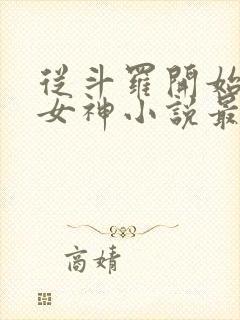 從斗羅開始
女神小說最
高婧